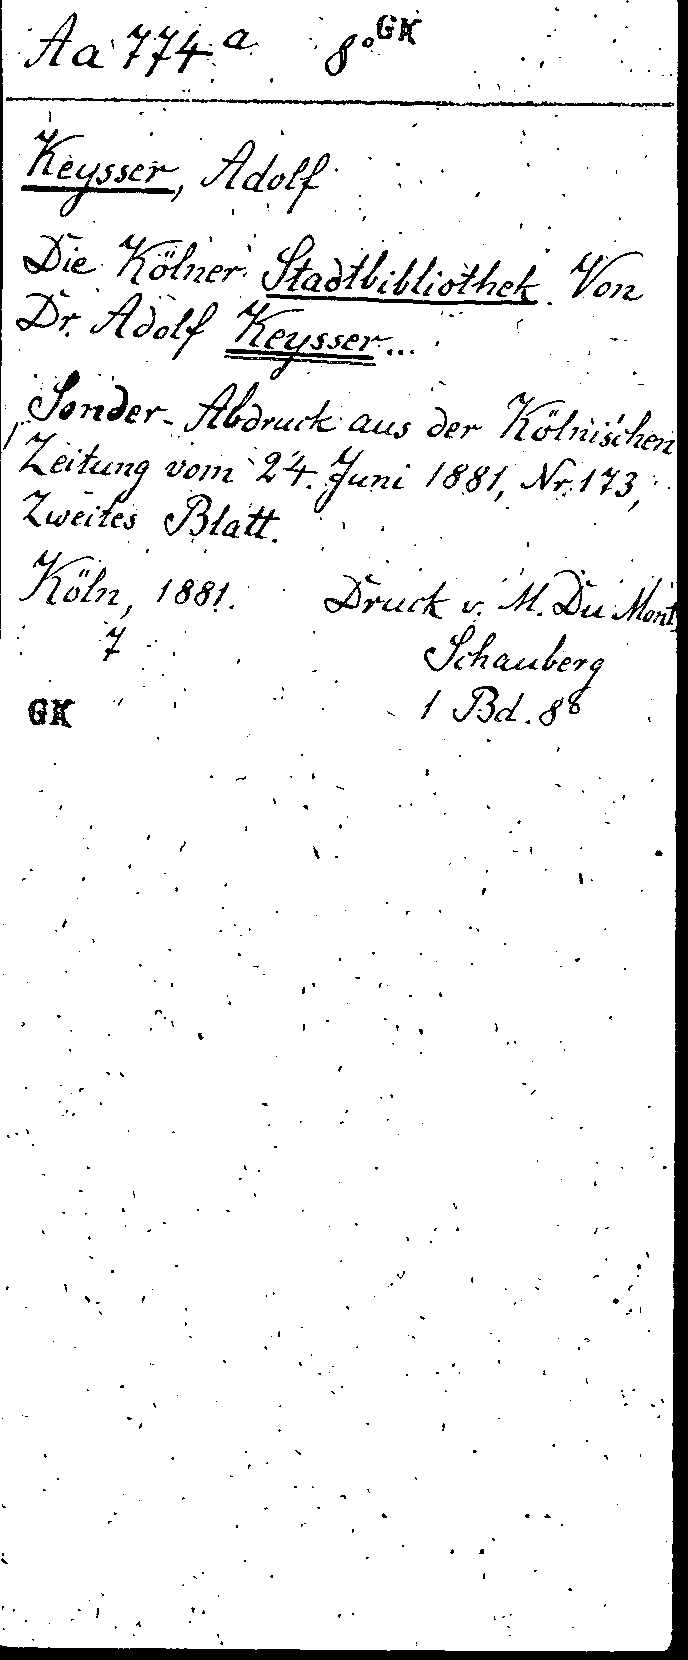 Aa 774 a 8° GK
Keysser, Adolf
Die Kölner Stadtbibliothek. Von
Dr. Adolf Keysser...
Sonder-Abdruck aus der Kölnischen
Zeitung vom 24. Juni 1881, Nr. 173,
Zweites Blatt.
Köln, 1881. Druck v. M. Du Mont
7 Schauberg
GK 1 Bd. 8°